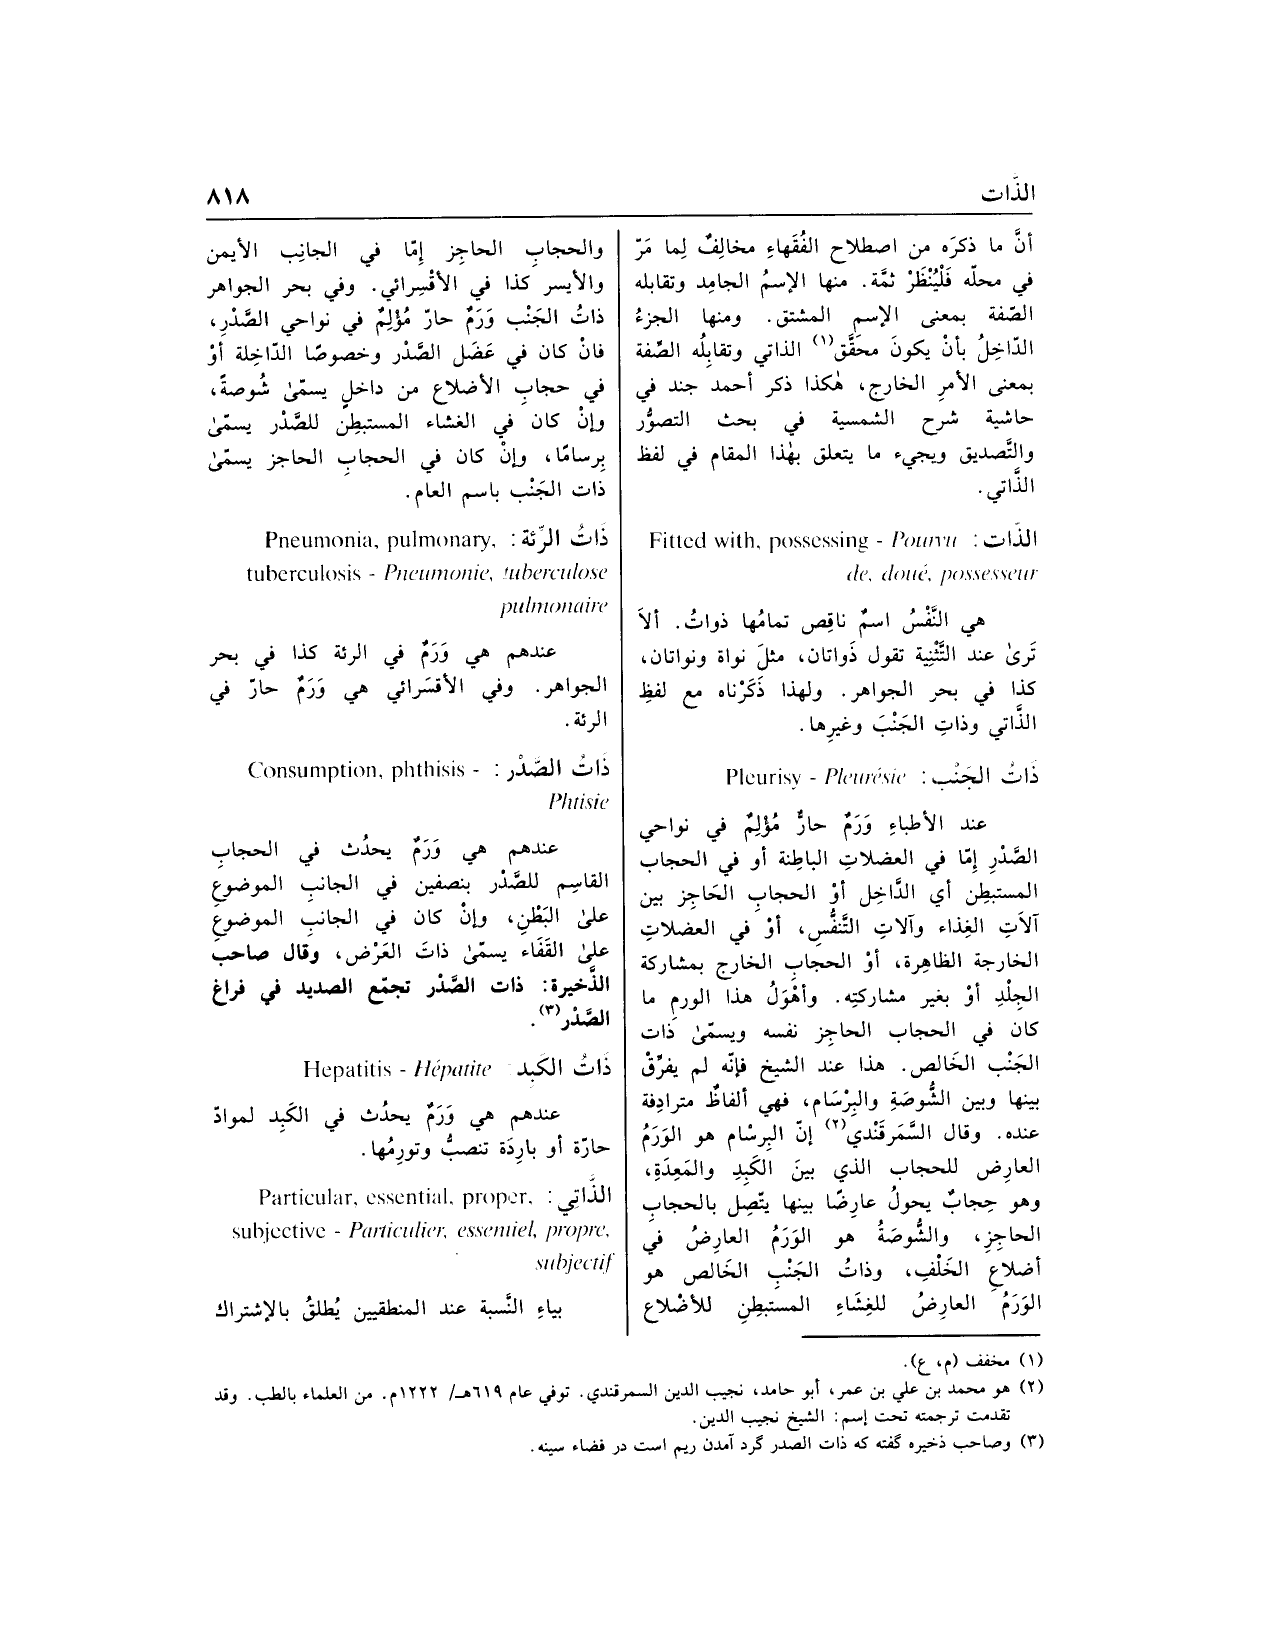 الذَّات
٨١٨
أنَّ ما ذكرَه من اصطلاح الفُقَهاءِ مخالِفٌ لِما مَرّ
في محلّه فَلْيُنْظَرْ ثمَّة. منها الإسمُ الجامِد وتقابله
الصّفة بمعنى الإسم المشتق. ومنها الجزءُ
الدّاخِلُ بأنْ يكونَ محَقَّق(١) الذاتي وتقابِلُه الصِّفة
بمعنى الأمرِ الخارج، هٰكذا ذكر أحمد جند في
حاشية شرح الشمسية في بحث التصوُّر
والتَّصديق ويجيء ما يتعلق بهٰذا المقام في لفظ
الذَّاتي.
الذَات: Fitted with, possessing - Pourvu
de, doué, possesseur
هي النَّفْسُ اسمٌ ناقِص تمامُها ذواتُ. ألاَ
تَرىٰ عند التَّثْنِية تقول ذَواتان، مثلَ نواة ونواتان،
كذا في بحر الجواهر. ولهذا ذَكَرْناه مع لفظِ
الذَّاتي وذاتِ الجَنْبَ وغيرِها.
ذَاتُ الجَنْب: Pleurisy - Pleurésie
عند الأطباءِ وَرَمٌ حارٌّ مُؤْلِمٌ في نواحي
الصَّدْرِ إمّا في العضلاتِ الباطِنة أو في الحجاب
المستبطِن أي الدَّاخِل أوْ الحجابِ الحَاجز بين
آلاَتِ الغِذاء وآلاتِ التَّنفُّسِ، أوْ في العضلاتِ
الخارجة الظاهِرة، أوْ الحجابِ الخارج بمشاركة
الجِلْدِ أوْ بغير مشاركتِه. وأهْوَلُ هذا الورمِ ما
كان في الحجاب الحاجِز نفسه ويسمّىٰ ذَات
الجَنْب الخَالص. هذا عند الشيخ فإنّه لم يفرِّقْ
بينها وبين الشُّوصَةِ والبِرْسَام، فهي ألفاظٌ مترادِفة
عنده. وقال السَّمَرقَندي(٢) إنّ البِرسْام هو الوَرَمُ
العارِض للحجاب الذي بينَ الكَبِدِ والمَعِدَةِ،
وهو حِجابٌ يحولُ عارِضًا بينها يتّصِل بالحجابِ
الحاجِزِ، والشُّوصَةُ هو الوَرَمُ العارِضُ في
أضلاعِ الخَلْفِ، وذاتُ الجَنْبِ الخَالص هو
الوَرَمُ العارِضُ للغِشَاءِ المستبطِنِ للأضْلاع
والحجابِ الحاجِز إمّا في الجانِب الأيمن
والأيسر كذا في الأقْسِرائي. وفي بحر الجواهر
ذاتُ الجَنْب وَرَمٌ حارّ مُؤْلِمٌ في نواحي الصَّدْرِ،
فانْ كان في عَضَل الصَّدْر وخصوصًا الدّاخِلة أوْ
في حجابِ الأضلاع من داخلٍ يسمّىٰ شُوصةً،
وإنْ كان في الغشاء المستبطِن للصَّدْر يسمّىٰ
بِرسامًا، وإنْ كان في الحجابِ الحاجز يسمّىٰ
ذات الجَنْب باسم العام.
ذَاتُ الرِّئة: Pneumonia, pulmonary,
tuberculosis - Pneumonie, tuberculose
pulmonaire
عندهم هي وَرَمٌ في الرئة كذا في بحر
الجواهر. وفي الأقسَرائي هي وَرَمٌ حارّ في
الرئة.
ذَاتُ الصَّدْر: Consumption, phthisis -
Phtisie
عندهم هي وَرَمٌ يحدُث في الحجابِ
القاسِم للصَّدْر بنصفين في الجانبِ الموضوعِ
علىٰ البَطْنِ، وإنْ كان في الجانبِ الموضوعِ
علىٰ القَفَاء يسمّىٰ ذاتَ العَرْض، وقال صاحب
الذَّخيرة: ذات الصَّدْر تجمّع الصديد في فراغ
الصَّدْر(٣).
ذَاتُ الكَبِد Hepatitis - Hépatite
عندهم هي وَرَمٌ يحدُث في الكَبِد لموادّ
حارّة أو بارِدَة تنصبُّ وتورِمُها.
الذَّاتِي: Particular, essential, proper,
subjective - Particulier, essentiel, propre,
subjectif
بياءِ النَّسبة عند المنطقيين يُطلقُ بالإشتراك
(١) مخفف (م، ع).
(٢) هو محمد بن علي بن عمر، أبو حامد، نجيب الدين السمرقندي. توفي عام ٦١٩هـ/ ١٢٢٢م. من العلماء بالطب. وقد
تقدمت ترجمته تحت إسم: الشيخ نجيب الدين.
(٣) وصاحب ذخيره گفته كه ذات الصدر گرد آمدن ريم است در فضاء سينه.